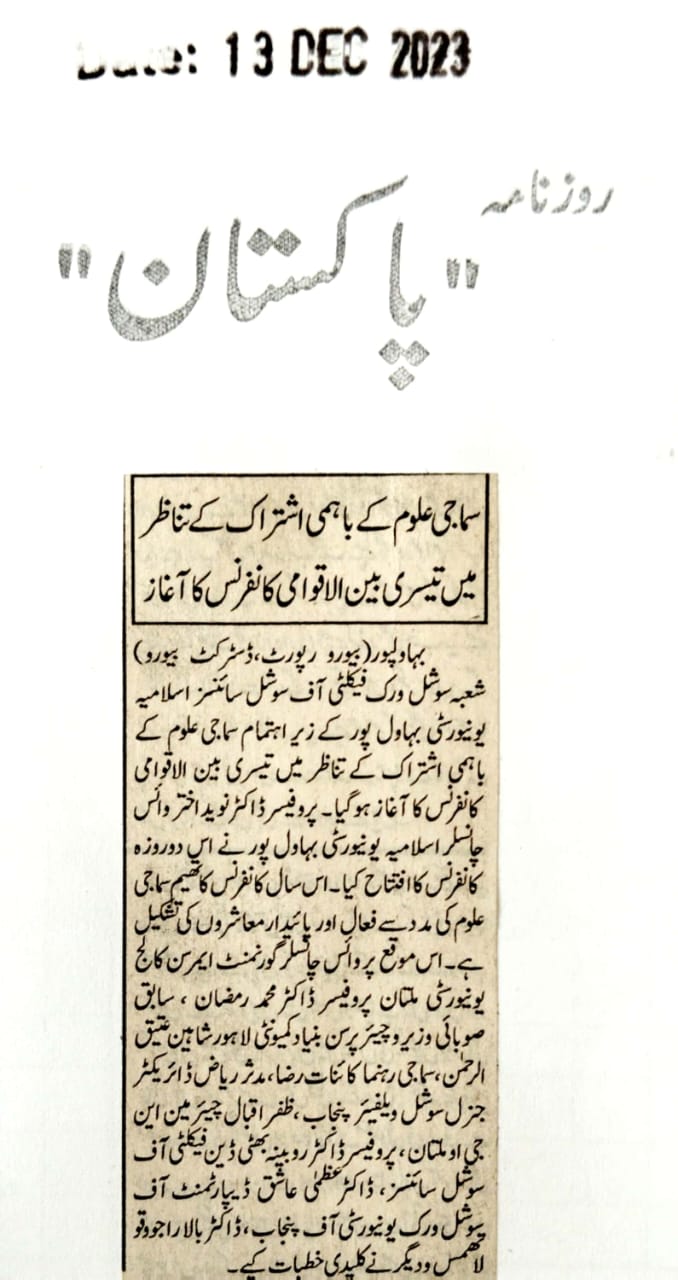 Date: 13 DEC 2023
روزنامہ
"پاکستان"
سماجی علوم کے باہمی اشتراک کے تناظر
میں تیسری بین الاقوامی کانفرنس کا آغاز
بہاولپور(بیورو رپورٹ،ڈسٹرکٹ بیورو)
شعبہ سوشل ورک فیکلٹی آف سوشل سائنسز اسلامیہ
یونیورسٹی بہاول پور کے زیر اہتمام سماجی علوم کے
باہمی اشتراک کے تناظر میں تیسری بین الاقوامی
کانفرنس کا آغاز ہوگیا۔ پروفیسر ڈاکٹر نوید اختر وائس
چانسلر اسلامیہ یونیورسٹی بہاول پور نے اس دوروزہ
کانفرنس کا افتتاح کیا۔ اس سال کانفرنس کا تھیم سماجی
علوم کی مدد سے فعال اور پائیدار معاشروں کی تشکیل
ہے۔ اس موقع پر وائس چانسلر گورنمنٹ ایمرسن کالج
یونیورسٹی ملتان پروفیسر ڈاکٹر محمد رمضان ، سابق
صوبائی وزیر و چیئر پرسن بنیاد کمیونٹی لاہور شاہین عتیق
الرحمٰن، سماجی رہنما کائنات رضا، مدثر ریاض ڈائریکٹر
جنرل سوشل ویلفیئر پنجاب ، ظفر اقبال چیئرمین این
جی او ملتان ، پروفیسر ڈاکٹر روبینہ بھٹی ڈین فیکلٹی آف
سوشل سائنسز، ڈاکٹر عظمٰی عاشق ڈیپارٹمنٹ آف
سوشل ورک یونیورسٹی آف پنجاب، ڈاکٹر بالا راجو
ودیگر نے کلیدی خطبات کیے۔